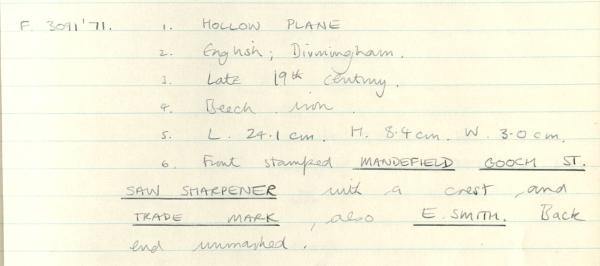 F. 3091'71. 1. HOLLOW PLANE
2. English; Birmingham.
3. Late 19th century.
4. Beech iron.
5. L. 24.1 cm. H. 8.4 cm. W. 3.0 cm.
6. Front stamped MANDEFIELD GOOCH ST.
SAW SHARPENER with a crest and
TRADE MARK, also E. SMITH. Back
end unmarked.